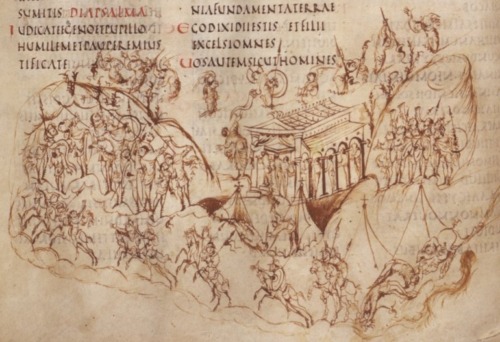 SUMITIS DIAPSALMA
IUDICATE EGENO ET PUPILLO
HUMILEM ET PAUPEREM IUS
TIFICATE
NIA FUNDAMENTA TERRAE
EGO DIXI DII ESTIS ET FILII
EXCELSI OMNES
UOS AUTEM SICUT HOMINES